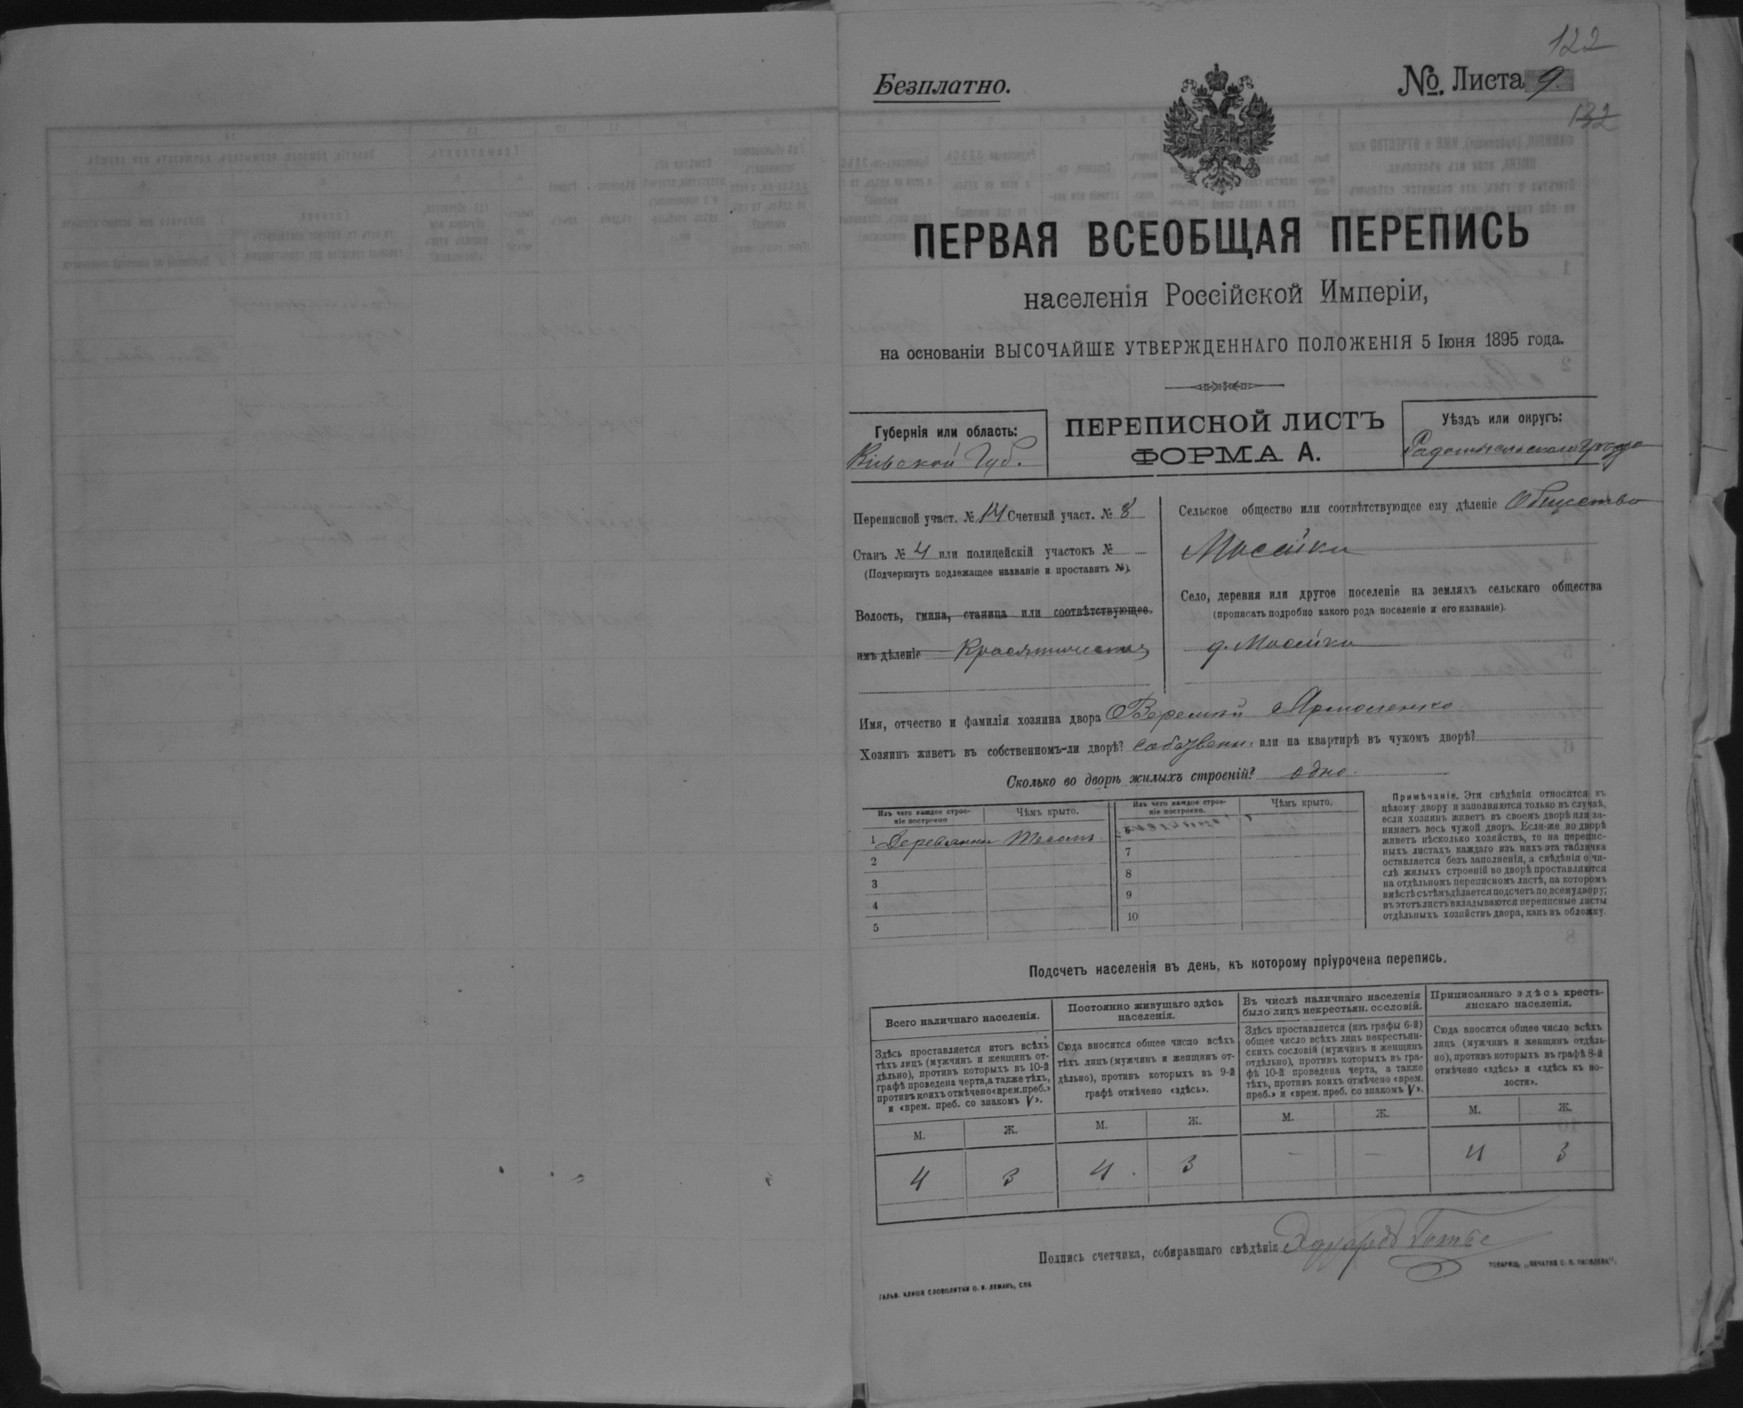 122
Безплатно.
№. Листа 9.
132
ПЕРВАЯ ВСЕОБЩАЯ ПЕРЕПИСЬ
населенія Россійской Имперіи,
на основаніи ВЫСОЧАЙШЕ УТВЕРЖДЕННАГО ПОЛОЖЕНІЯ 5 Іюня 1895 года.
Губернія или область:
Кіевской Губ.
ПЕРЕПИСНОЙ ЛИСТЪ
ФОРМА А.
Уѣздъ или округъ:
Переписной участ. № 14 Счетный участ. № 8
Станъ № 4 или полицейскій участокъ №
(Подчеркнуть подлежащее названіе и проставить №).
Волость, гмина, станица или соотвѣтствующее
имъ дѣленіе
Сельское общество или соотвѣтствующее ему дѣленіе Общество
Мосейки
Село, деревня или другое поселеніе на земляхъ сельскаго общества
(прописать подробно какого рода поселеніе и его названіе).
д. Мосейки
Имя, отчество и фамилія хозяина двора Ярмоленко
Хозяинъ живетъ въ собственномъ-ли дворѣ? или на квартирѣ въ чужомъ дворѣ?
Сколько во дворѣ жилыхъ строеній? одно.
Изъ чего каждое строе-
ніе построено
Чѣмъ крыто.
Изъ чего каждое строе-
ніе построено.
Чѣмъ крыто.
1
2
3
4
5
7
8
9
10
Примѣчаніе. Эти свѣдѣнія относятся къ
цѣлому двору и заполняются только въ случаѣ,
если хозяинъ живетъ въ своемъ дворѣ или за-
нимаетъ весь чужой дворъ. Если-же во дворѣ
живетъ нѣсколько хозяйствъ, то на перепис-
ныхъ листахъ каждаго изъ нихъ эта табличка
оставляется безъ заполненія, а свѣдѣнія о чи-
слѣ жилыхъ строеній во дворѣ проставляются
на отдѣльномъ переписномъ листѣ, на которомъ
вмѣстѣ съ тѣмъ дѣлается подсчетъ по всему двору;
въ этотъ листъ вкладываются переписные листы
отдѣльныхъ хозяйствъ двора, какъ въ обложку.
Подсчетъ населенія въ день, къ которому пріурочена перепись.
Всего наличнаго населенія.
Постоянно живущаго здѣсь
населенія.
Въ числѣ наличнаго населенія
было лицъ некрестьян. сословій.
Приписаннаго здѣсь кресть-
янскаго населенія.
Здѣсь проставляется итогъ всѣхъ
тѣхъ лицъ (мужчинъ и женщинъ от-
дѣльно), противъ которыхъ въ 10-й
графѣ проведена черта, а также тѣхъ,
противъ коихъ отмѣчено «врем. преб.»
и «врем. преб. со знакомъ V».
Сюда вносится общее число всѣхъ
тѣхъ лицъ (мужчинъ и женщинъ от-
дѣльно), противъ которыхъ въ 9-й
графѣ отмѣчено «здѣсь».
Здѣсь проставляется (изъ графы 6-й)
общее число всѣхъ лицъ некрестьян-
скихъ сословій (мужчинъ и женщинъ
отдѣльно), противъ которыхъ въ гра-
фѣ 10-й проведена черта, а также
тѣхъ, противъ коихъ отмѣчено «врем.
преб.» и «врем. преб. со знакомъ V».
Сюда вносится общее число всѣхъ
лицъ (мужчинъ и женщинъ отдѣль-
но), противъ которыхъ въ графѣ 8-й
отмѣчено «здѣсь» и «здѣсь къ во-
лости».
М. Ж. М. Ж. М. Ж. М. Ж.
4 3 4 3 – – 4 3
Подпись счетчика, собиравшаго свѣдѣнія
ГАЛЬВ. КЛИШЕ СЛОВОЛИТНИ О. И. ЛЕМАНЪ, СПБ.
ТОВАРИЩ. „ПЕЧАТНЯ С. П. ЯКОВЛЕВА“.